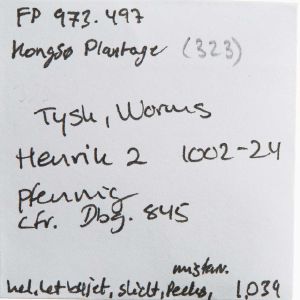 FP 973.497
Hongsø Plantage (323)
Tysk, Worms
Henrik 2 1002-24
pfennig
cfr. Dbg. 845
hel, let bøjet, slidt, 1,039